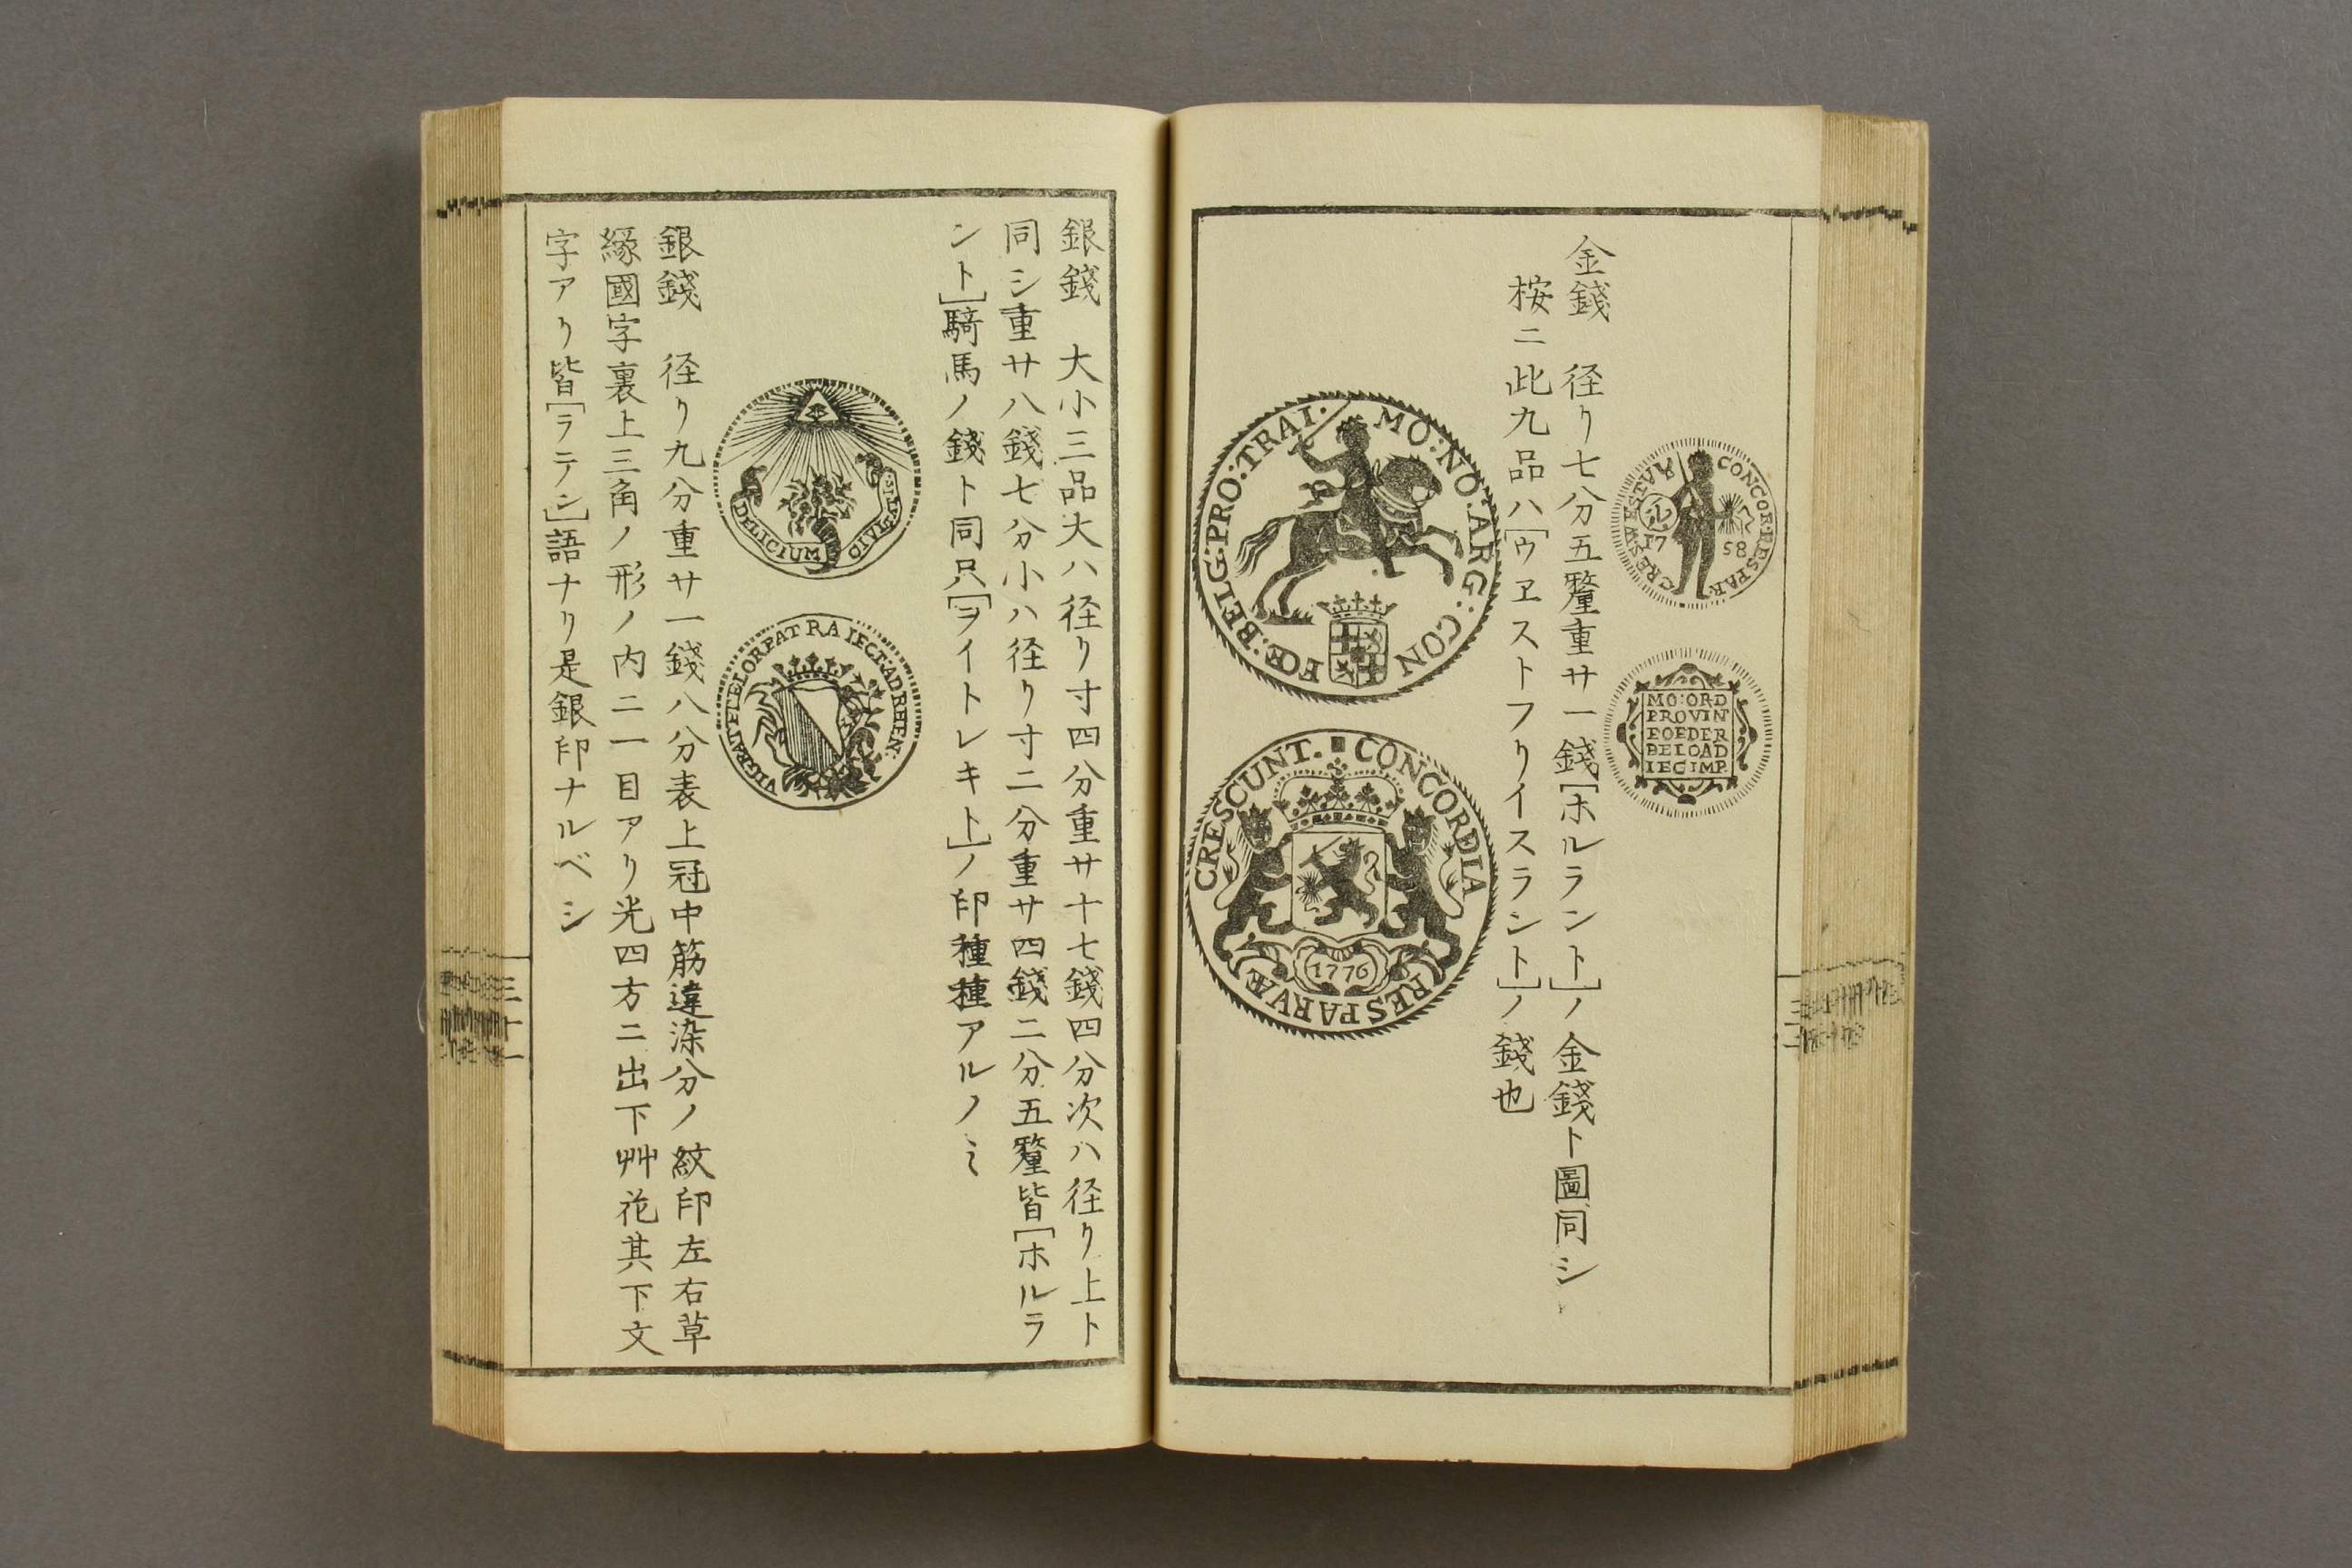 CONCOR:RES PAR
CRES:WEESTVR
17 58
MO:ORD
PROVIN
FOEDER
BELGAD
LEGIMP.
金錢　径リ七分五釐重サ一錢[ホルラント]ノ金錢ト圖同シ
桉ニ此九品ハ[ウヱストフリイスラント]ノ錢也
MO:NO:ARG:CON FŒ:BELG:PRO:TRAI.
CONCORDIA RES PARVÆ CRESCUNT.
1776
銀錢　大小三品大ハ径リ寸四分重サ十七錢四分次ハ径リ上ト
同シ重サ八錢七分小ハ径リ寸二分重サ四錢二分五釐皆[ホルラ
ント]騎馬ノ錢ト同只[ヲイトレキト]ノ印種種アルノミ
DELICIUM
VIGRATFTELORPAT RA IECT:ADRHEN:
銀錢　径リ九分重サ一錢八分表上冠中筋違染分ノ紋印左右草
縁國字裏上三角ノ形ノ内ニ一目アリ光四方ニ出下艸花其下文
字アリ皆[ラテン]語ナリ是銀印ナルベシ
三十一